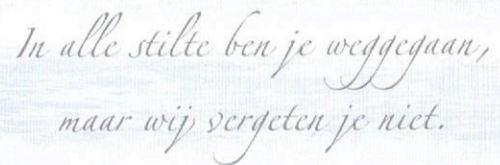 In alle stilte ben je weggegaan,
maar wij vergeten je niet.